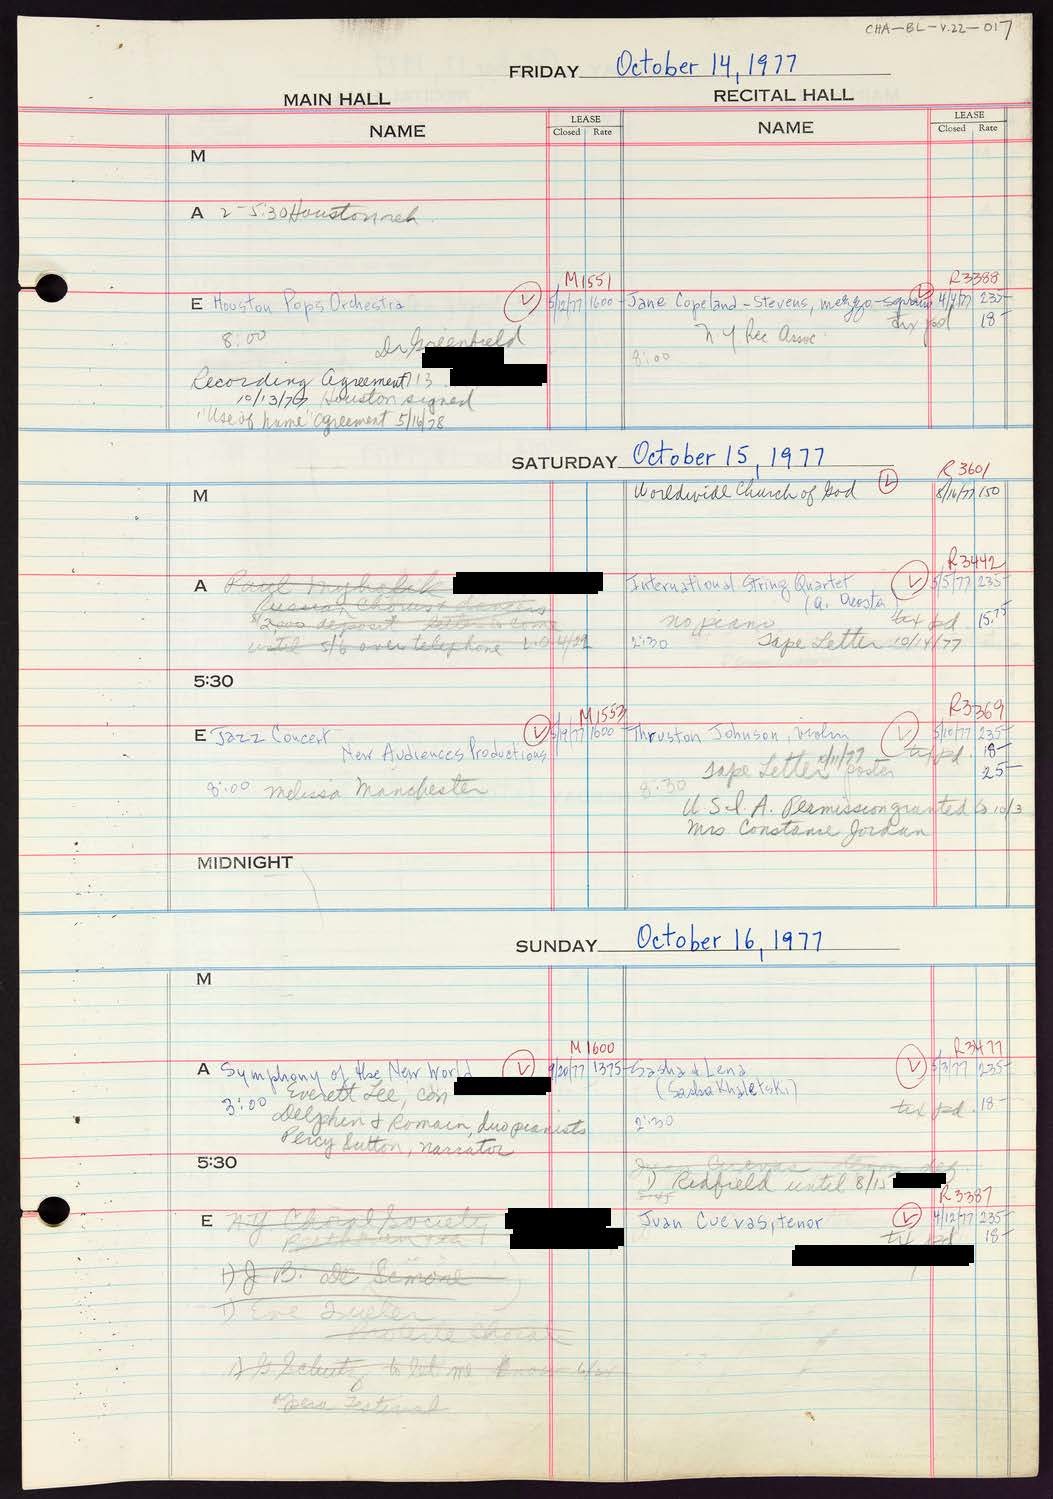 CHA-BL-V.22-017
FRIDAY October 14, 1977
MAIN HALL
RECITAL HALL
NAME
LEASE
Closed Rate
NAME
LEASE
Closed Rate
M
A 2-5:30 Houston reh
M1551
R3388
E Houston Pops Orchestra
5/12/77 1600-
Jane Copeland-Stevens, mezzo-soprano
4/4/77 235-
tix pd 18-
8:00
N Y Rec Assoc
Dr Greenfield
8:00
Recording Agreement 113
10/13/77 Houston signed
"Use of name" agreement 5/16/78
SATURDAY October 15, 1977
R3601
M
Worldwide Church of God
8/16/77 150
R3442
A Paul
Russian Chorus & dancers
$2,000 deposit letter to come
until 5/6 over telephone
International String Quartet
5/5/77 235-
(A. Acosta)
no piano
tix pd. 15.75
2:30
Tape Letter 10/14/77
5:30
M1553
R3369
E Jazz Concert
5/19/77 1600
New Audiences Productions
8:00 Melissa Manchester
Thruston Johnson, violin
5/10/77 235-
tix pd. 18-
Tape Letter poster 25-
8:30
U.S.I.A. Permission granted 10/3
Mrs Constance Jordan
MIDNIGHT
SUNDAY October 16, 1977
M
M1600
R3477
A Symphony of the New World
9/20/77 1375-
Everett Lee, con
3:00
Delphin & Romain, duo pianists
Percy Sutton, narrator
Sasha & Lena
5/3/77 235-
(Sasha Khaletski)
tix pd. 18-
2:30
5:30
Juan Cuevas
1) Redfield until 8/15
R3387
E NY Choral Society
1) J B. De Simone
1) Eve
Choral
1) G Schutz to let me know
Opera Festival
Juan Cuevas, tenor
4/12/77 235-
tix pd 18-